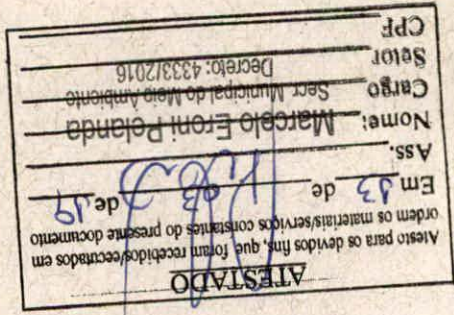 ATESTADO
Atesto para os devidos fins, que foram recebidos/executados em
ordem os materiais/serviços constantes do presente documento
Em 13 de 03 de 19
Ass.
Nome: Marcelo Eroni Pelanda
Cargo Secr. Municipal do Meio Ambiente
Setor Decreto: 4333/2016
CPF